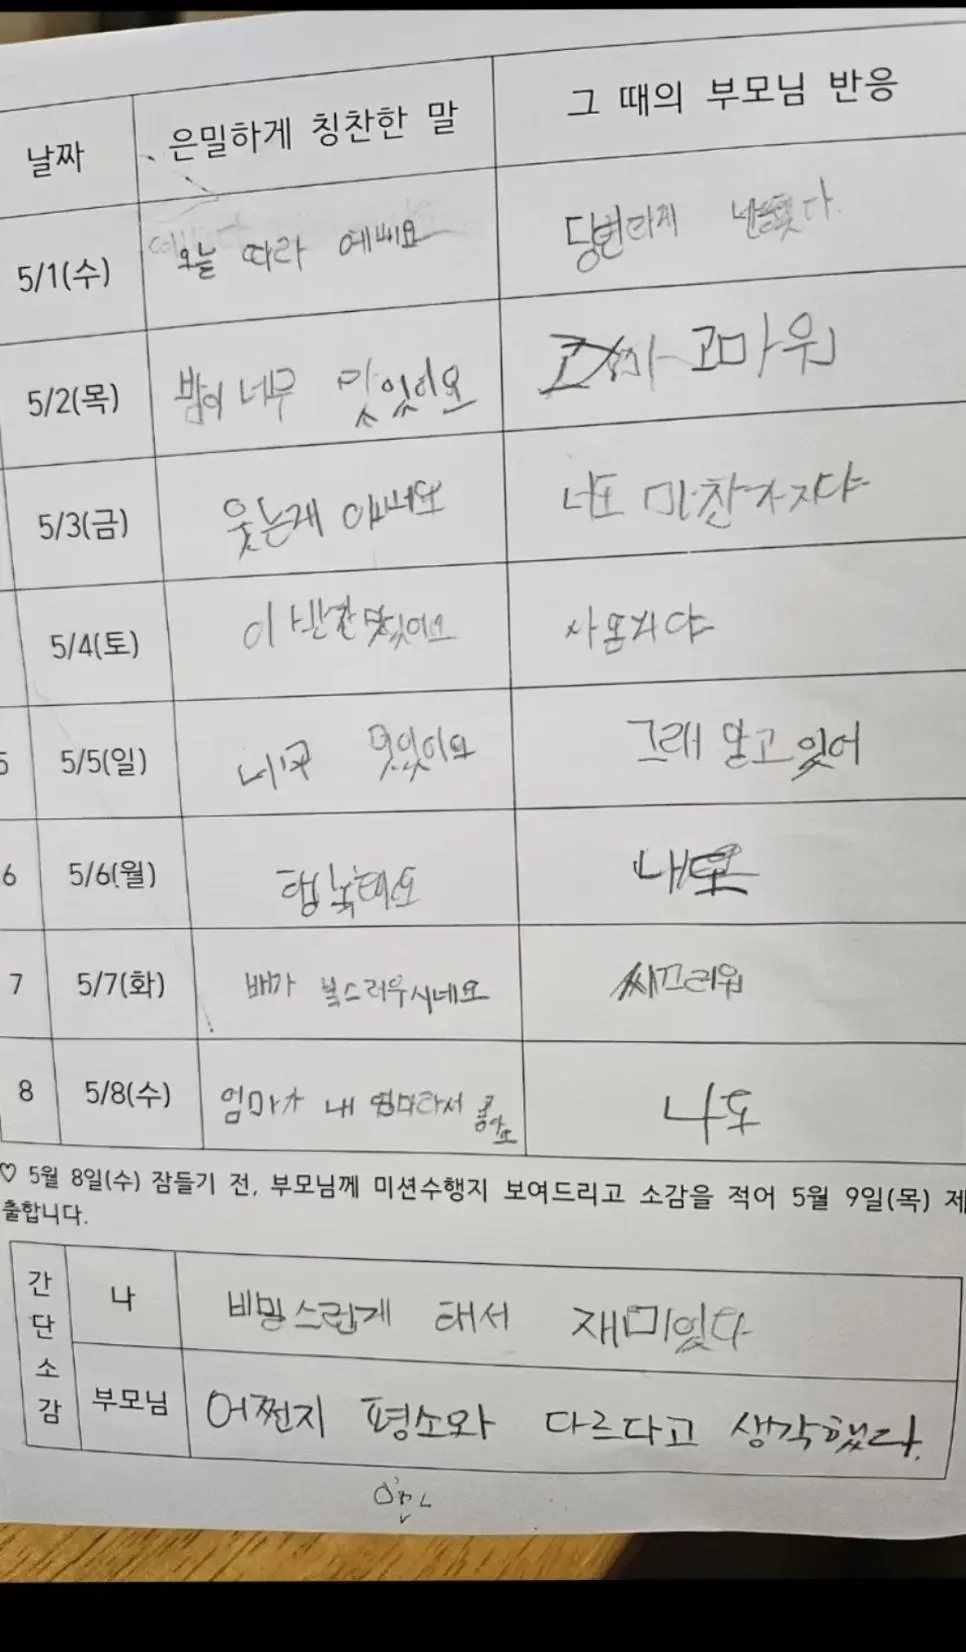 날짜 은밀하게 칭찬한 말 그 때의 부모님 반응
5/1(수) 오늘 따라 예뻐요 당변하게
5/2(목) 밥이 너무 맛있어요 고마워
5/3(금) 웃는게 너도 마찬가지다
5/4(토) 이
5/5(일) 너무 맛있어요 그래 알고 있어
6 5/6(월) 행복해요 나도
7 5/7(화) 배가 복스러우시네요 씨끄러워
8 5/8(수) 엄마가 내 엄마라서 좋아요 나도
♡ 5월 8일(수) 잠들기 전, 부모님께 미션수행지 보여드리고 소감을 적어 5월 9일(목) 제
출합니다.
간단소감
나 비밀스럽게 해서 재미있다
부모님 어쩐지 평소와 다르다고 생각했다.